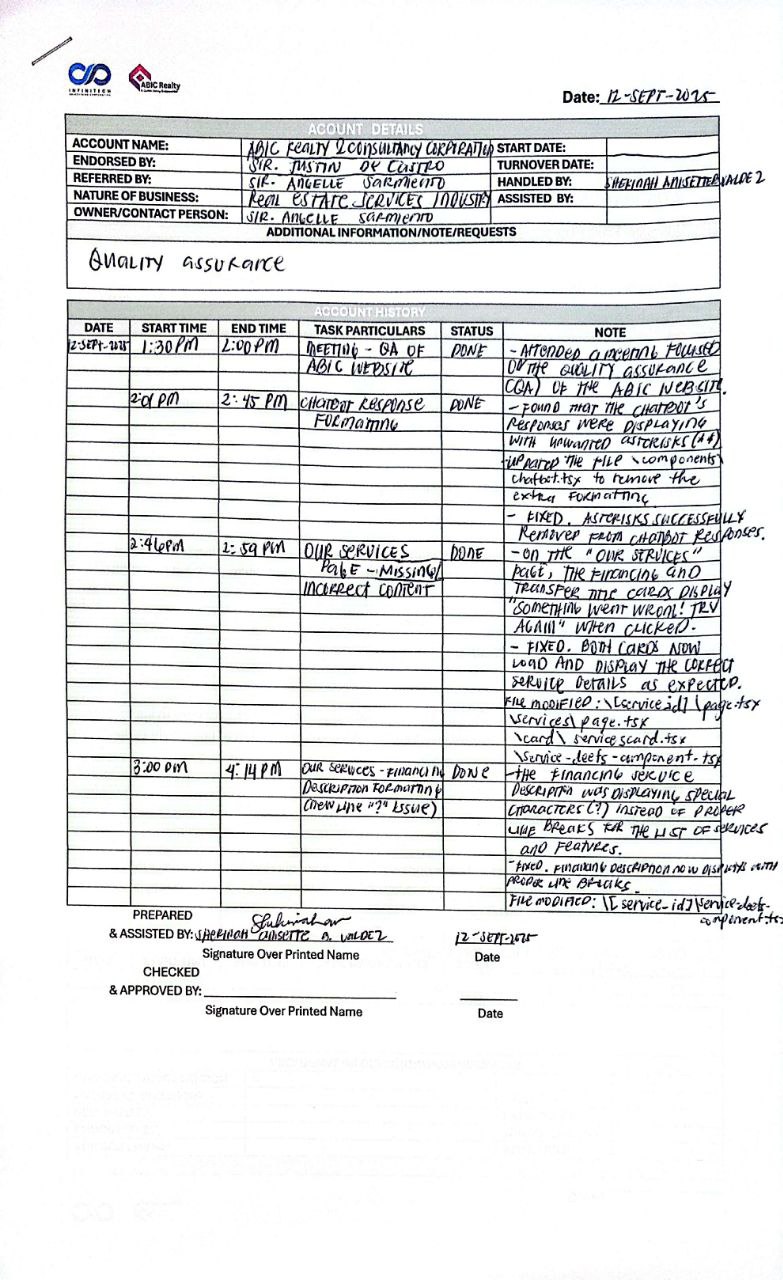 INFINITECH
ABIC Realty
Date: 12-SEPT-2025
ACOUNT DETAILS
ACCOUNT NAME: ABIC REALTY & CONSULTANCY CORPORATION START DATE:
ENDORSED BY: SIR. JUSTIN DE CASTRO TURNOVER DATE:
REFERRED BY: SIR. ANGELLE SARMIENTO HANDLED BY: SHEKINAH ANISETTE VALDEZ
NATURE OF BUSINESS: REAL ESTATE SERVICES INDUSTRY ASSISTED BY:
OWNER/CONTACT PERSON: SIR. ANGELLE SARMIENTO
ADDITIONAL INFORMATION/NOTE/REQUESTS
QUALITY ASSURANCE
ACCOUNT HISTORY
DATE START TIME END TIME TASK PARTICULARS STATUS NOTE
12-SEPT-2025 1:30 PM 2:00 PM MEETING - QA OF DONE - ATTENDED A MEETING FOCUSED
ABIC WEBSITE ON THE QUALITY ASSURANCE
(QA) OF THE ABIC WEBSITE.
2:01 PM 2:45 PM CHATBOT RESPONSE DONE - FOUND THAT THE CHATBOT'S
FORMATTING RESPONSES WERE DISPLAYING
WITH UNWANTED ASTERISKS (**)
- UPDATED THE FILE \components\
chatbot.tsx to remove the
extra FORMATTING
- FIXED. ASTERISKS SUCCESSFULLY
REMOVED FROM CHATBOT RESPONSES.
2:46 PM 2:59 PM OUR SERVICES DONE - ON THE "OUR SERVICES"
PAGE - MISSING/ PAGE, THE FINANCING AND
INCORRECT CONTENT TRANSFER TITLE CARDS DISPLAY
"SOMETHING WENT WRONG! TRY
AGAIN" WHEN CLICKED.
- FIXED. BOTH CARDS NOW
LOAD AND DISPLAY THE CORRECT
SERVICE DETAILS AS EXPECTED.
FILE MODIFIED: \[service_id]\page.tsx
\services\page.tsx
\card\servicescard.tsx
\service-deets-component.tsx
3:00 PM 4:14 PM OUR SERVICES - FINANCING DONE - THE FINANCING SERVICE
DESCRIPTION FORMATTING DESCRIPTION WAS DISPLAYING SPECIAL
(NEW LINE "?" ISSUE) CHARACTERS (?) INSTEAD OF PROPER
LINE BREAKS FOR THE LIST OF SERVICES
AND FEATURES.
- FIXED. FINANCING DESCRIPTION NOW DISPLAYS WITH
PROPER LINE BREAKS.
FILE MODIFIED: \[service-id]\service-deets-
component.tsx
PREPARED
& ASSISTED BY: SHEKINAH ANISETTE B. VALDEZ 12-SEPT-2025
Signature Over Printed Name Date
CHECKED
& APPROVED BY:
Signature Over Printed Name Date